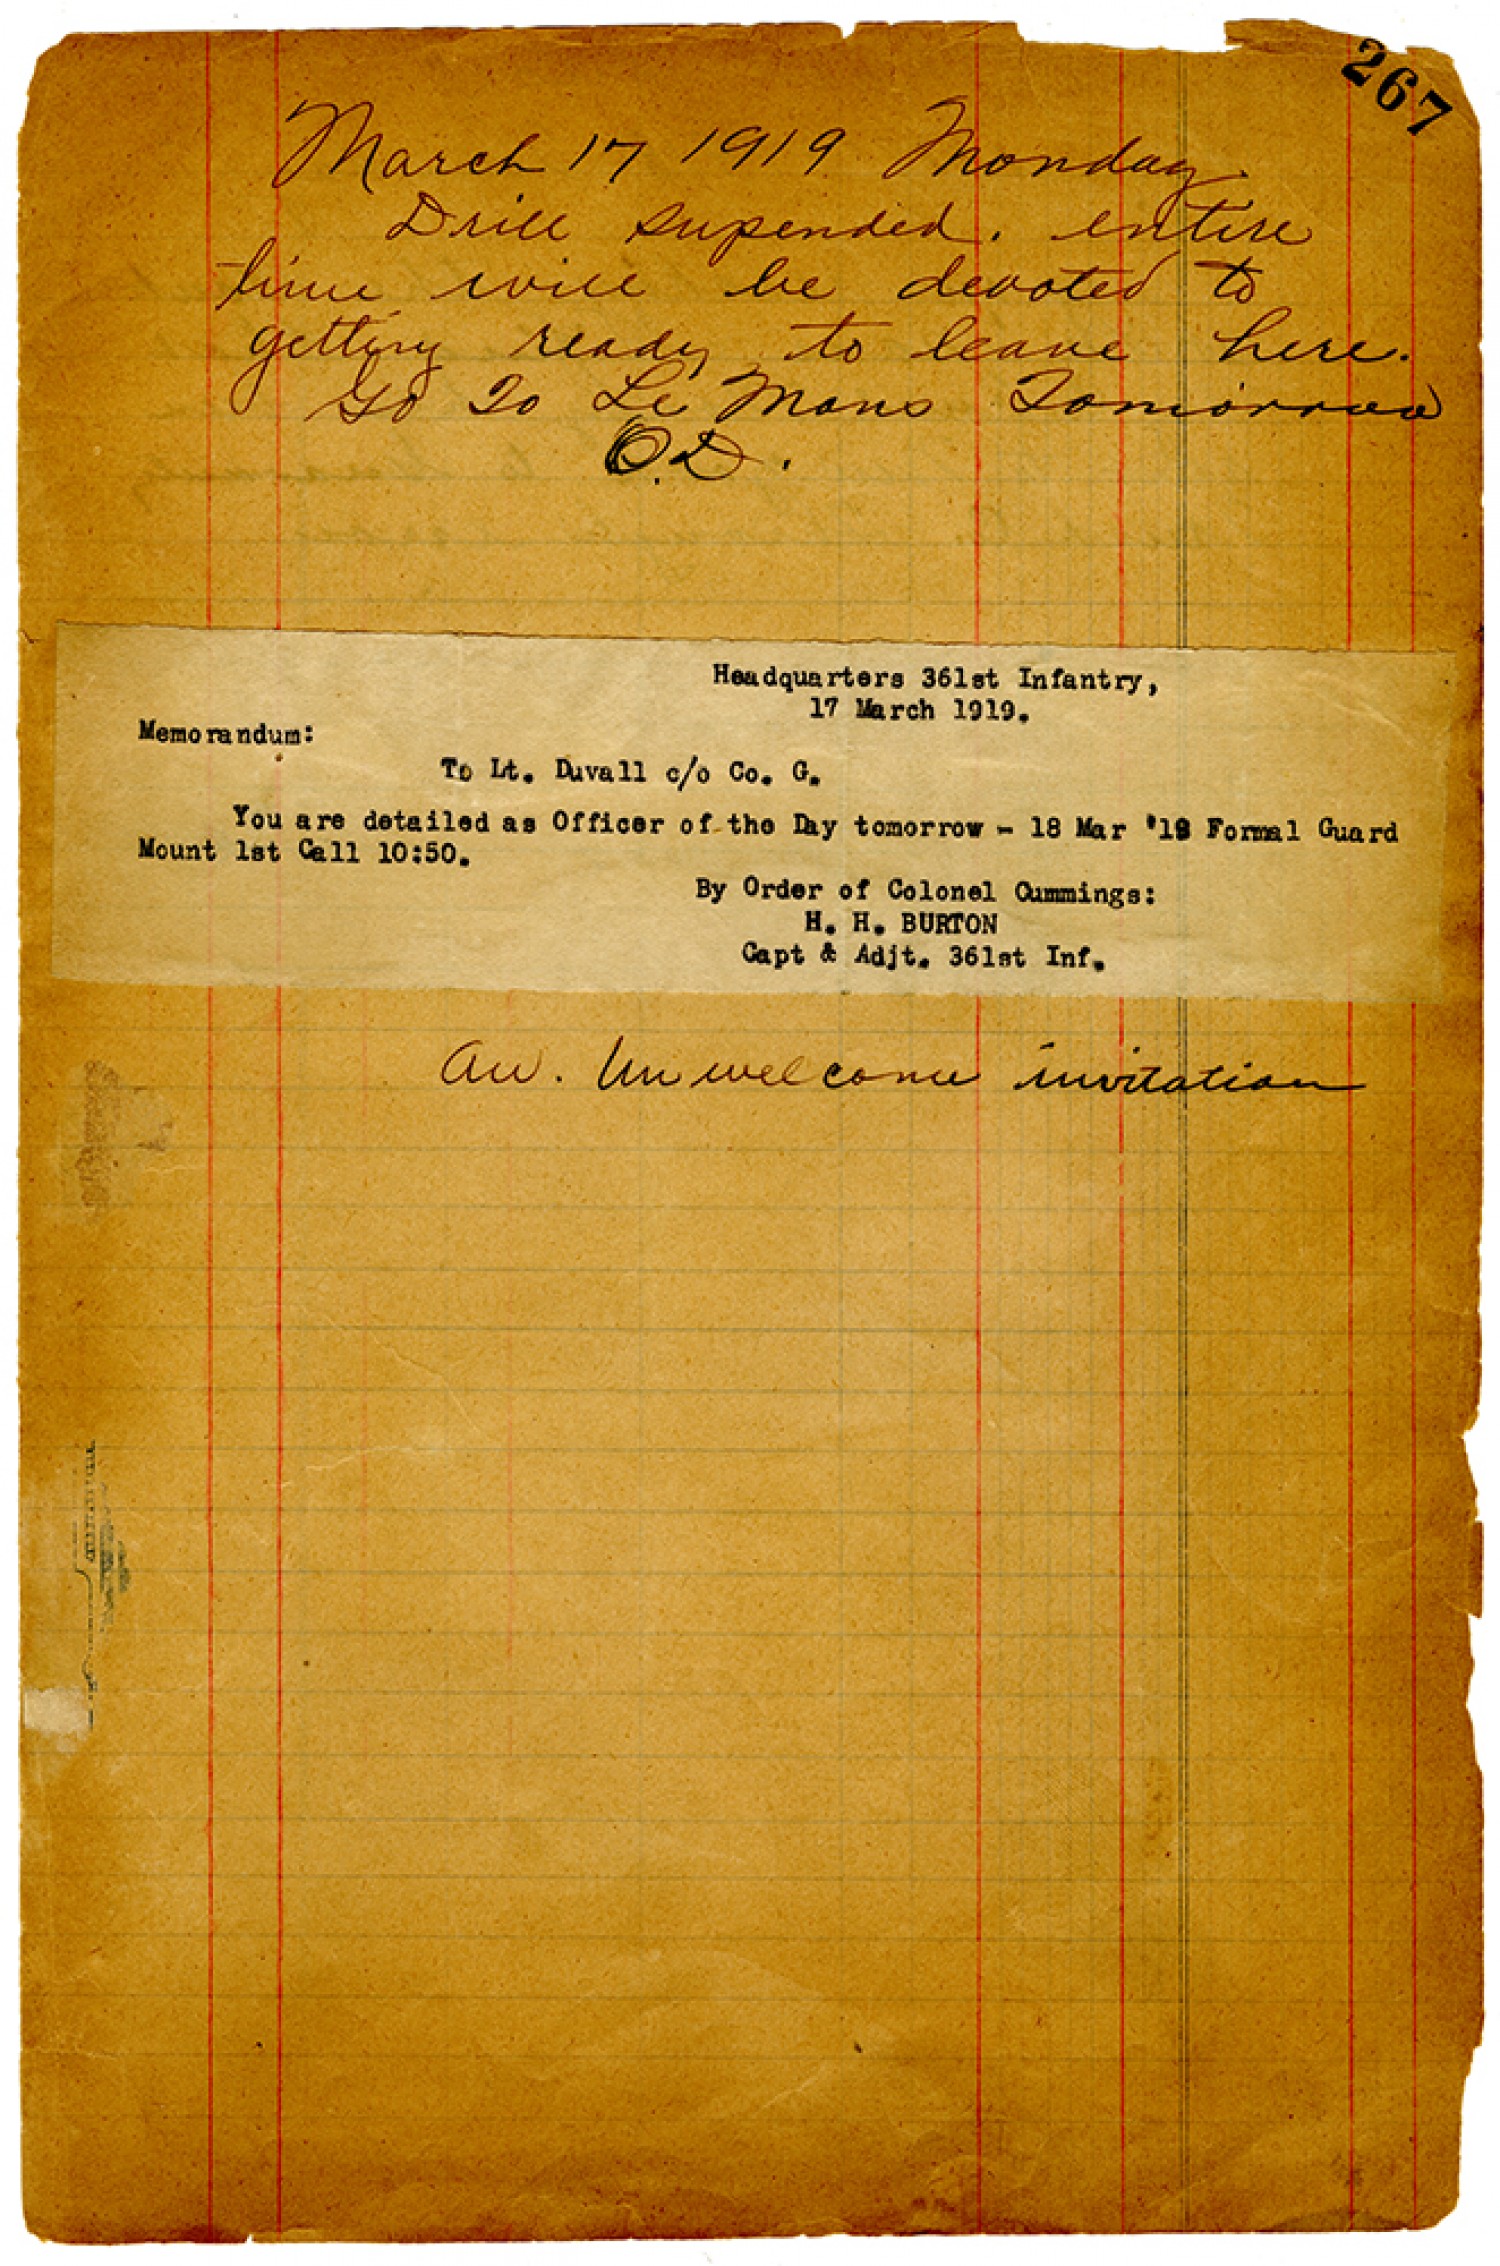 267
March 17 1919 Monday.
Drill supended. entire
time will be devoted to
getting ready to leave here.
Go To Le Mans Tomorrow
O.D.
Headquarters 361st Infantry,
17 March 1919.
Memorandum:
To Lt. Duvall c/o Co. G.
You are detailed as Officer of the Day tomorrow - 18 Mar '19 Formal Guard
Mount 1st Call 10:50.
By Order of Colonel Cummings:
H. H. BURTON
Capt & Adjt. 361st Inf.
An. Unwelcome invitation